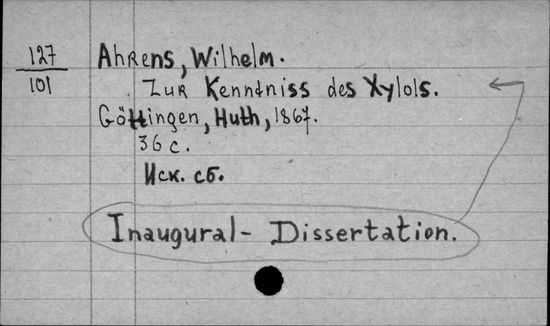 127
101
Ahrens, Wilhelm.
Zur Kenntniss des Xylols.
Göttingen, Huth, 1867.
36 с.
Иск. сб.
Inaugural- Dissertation.